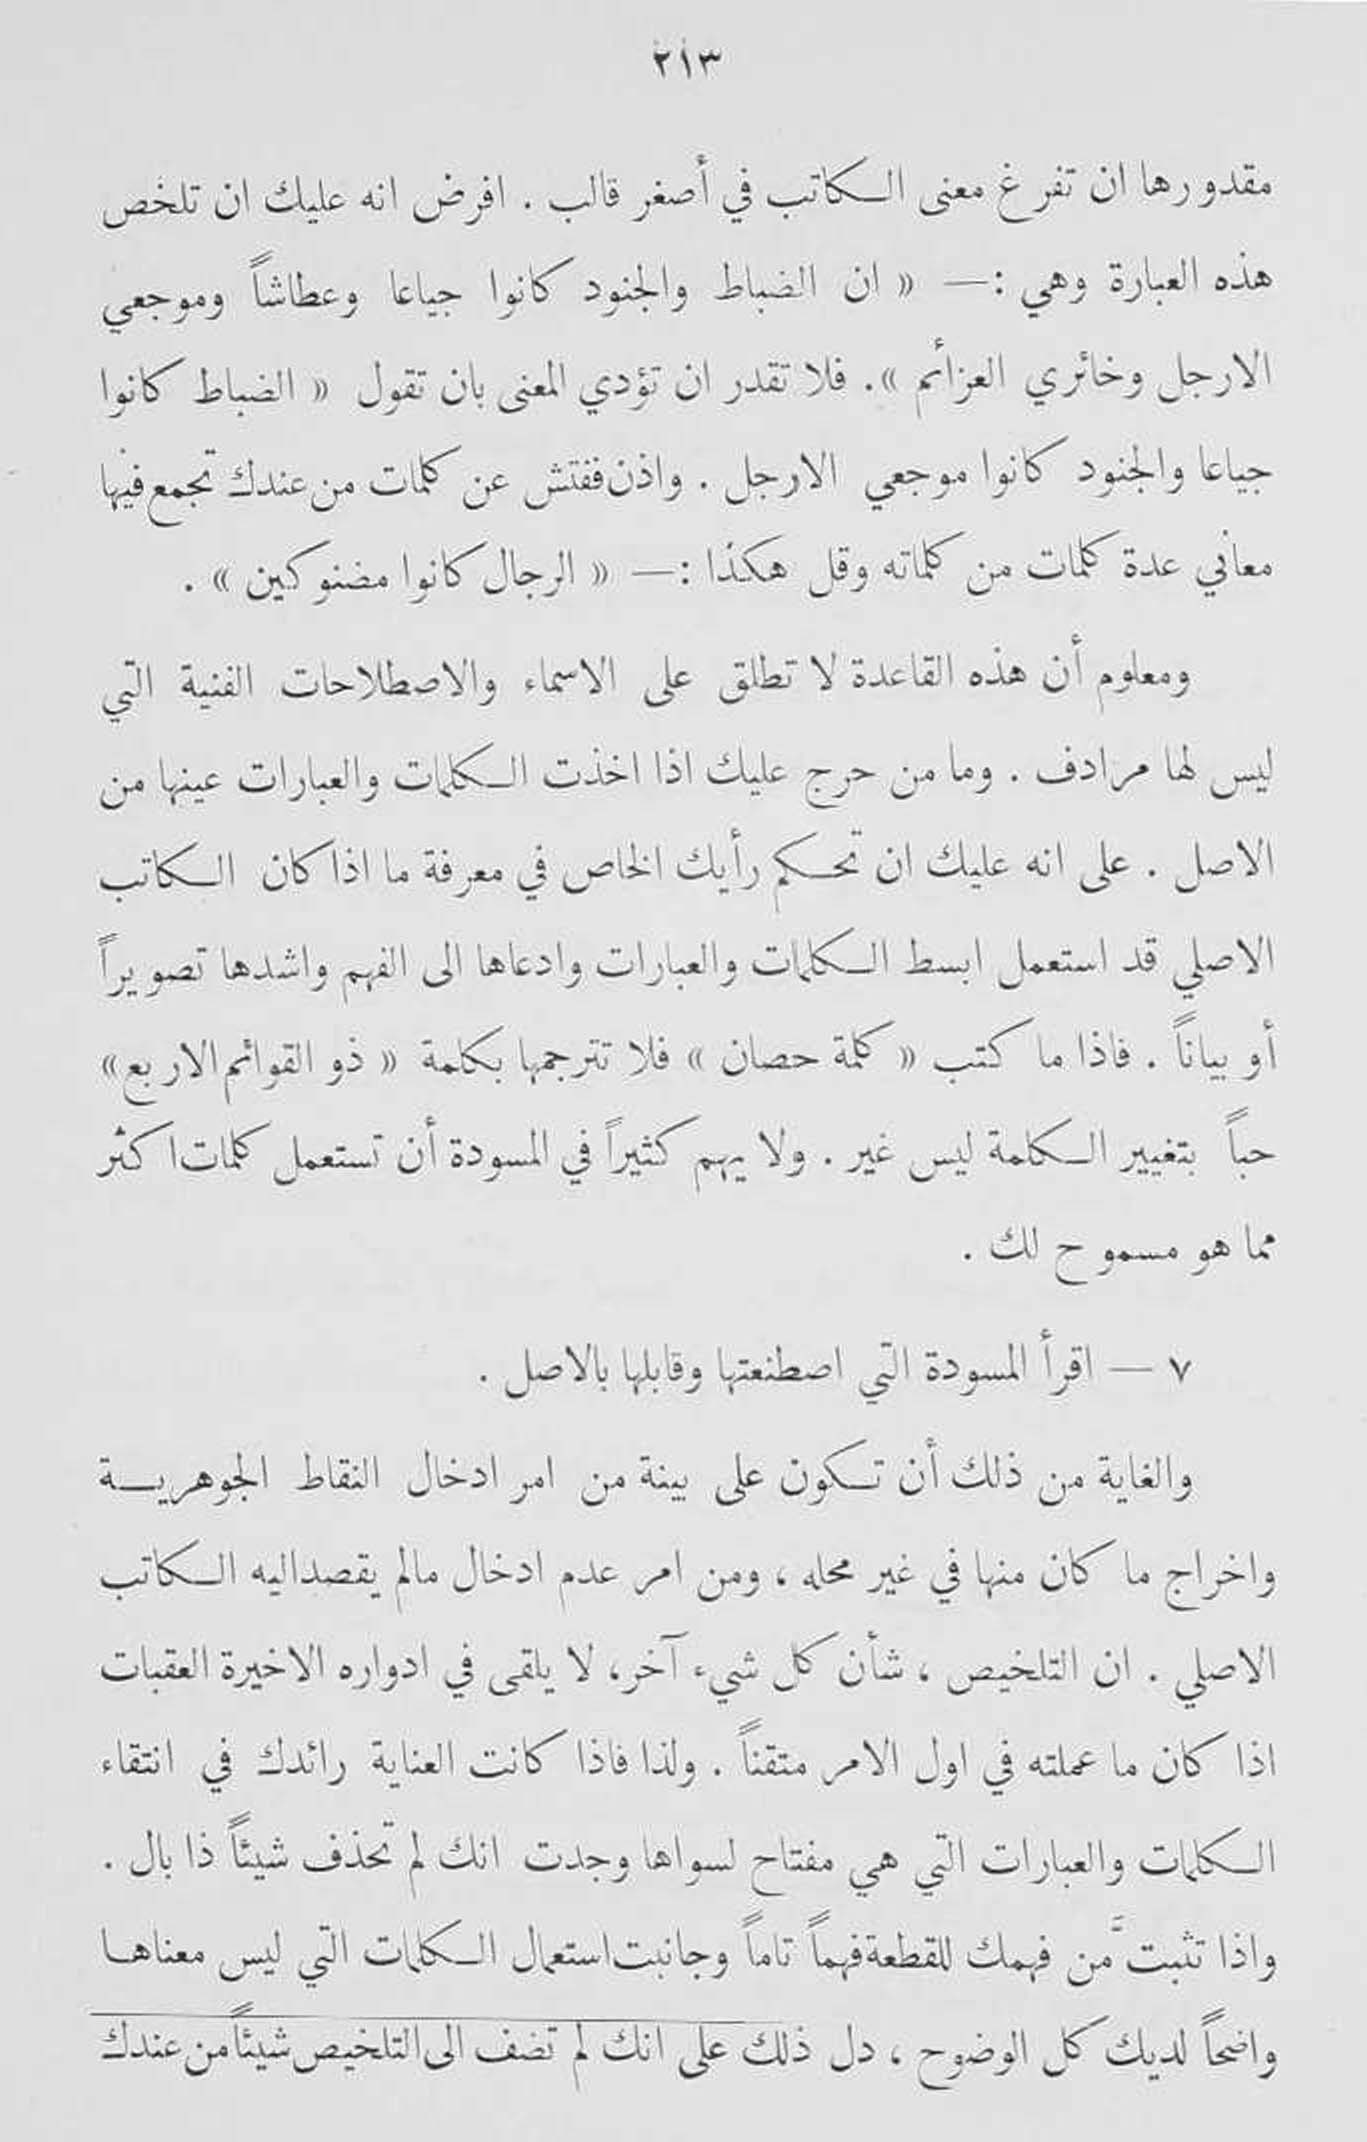 ٢١٣
مقدورها ان تفرغ معنى الكاتب في أصغر قالب . افرض انه عليك ان تلخص
هذه العبارة وهي :— « ان الضباط والجنود كانوا جياعا وعطاشاً وموجعي
الارجل وخائري العزائم » . فلا تقدر ان تؤدي المعنى بان تقول « الضباط كانوا
جياعا والجنود كانوا موجعي الارجل . واذن ففتش عن كلمات من عندك تجمع فيها
معاني عدة كلمات من كلماته وقل هكذا :— « الرجال كانوا مضنوكين » .
ومعلوم أن هذه القاعدة لا تطلق على الاسماء والاصطلاحات الفنية التي
ليس لها مرادف . وما من حرج عليك اذا اخذت الكلمات والعبارات عينها من
الاصل . على انه عليك ان تحكم رأيك الخاص في معرفة ما اذا كان الكاتب
الاصلي قد استعمل ابسط الكلمات والعبارات وادعاها الى الفهم واشدها تصويراً
أو بياناً . فاذا ما كتب « كلمة حصان » فلا تترجمها بكلمة « ذو القوائم الاربع »
حباً بتغيير الكلمة ليس غير . ولا يهم كثيراً في المسودة أن تستعمل كلمات اكثر
مما هو مسموح لك .
٧ — اقرأ المسودة التي اصطنعتها وقابلها بالاصل .
والغاية من ذلك أن تكون على بينة من امر ادخال النقاط الجوهرية
واخراج ما كان منها في غير محله ، ومن امر عدم ادخال مالم يقصد اليه الكاتب
الاصلي . ان التلخيص ، شأن كل شيء آخر، لا يلقى في ادواره الاخيرة العقبات
اذا كان ما عملته في اول الامر متقناً . ولذا فاذا كانت العناية رائدك في انتقاء
الكلمات والعبارات التي هي مفتاح لسواها وجدت انك لم تحذف شيئاً ذا بال .
واذا تثبتَّ من فهمك للقطعة فهماً تاماً وجانبت استعمال الكلمات التي ليس معناها
واضحاً لديك كل الوضوح ، دل ذلك على انك لم تضف الى التلخيص شيئاً من عندك